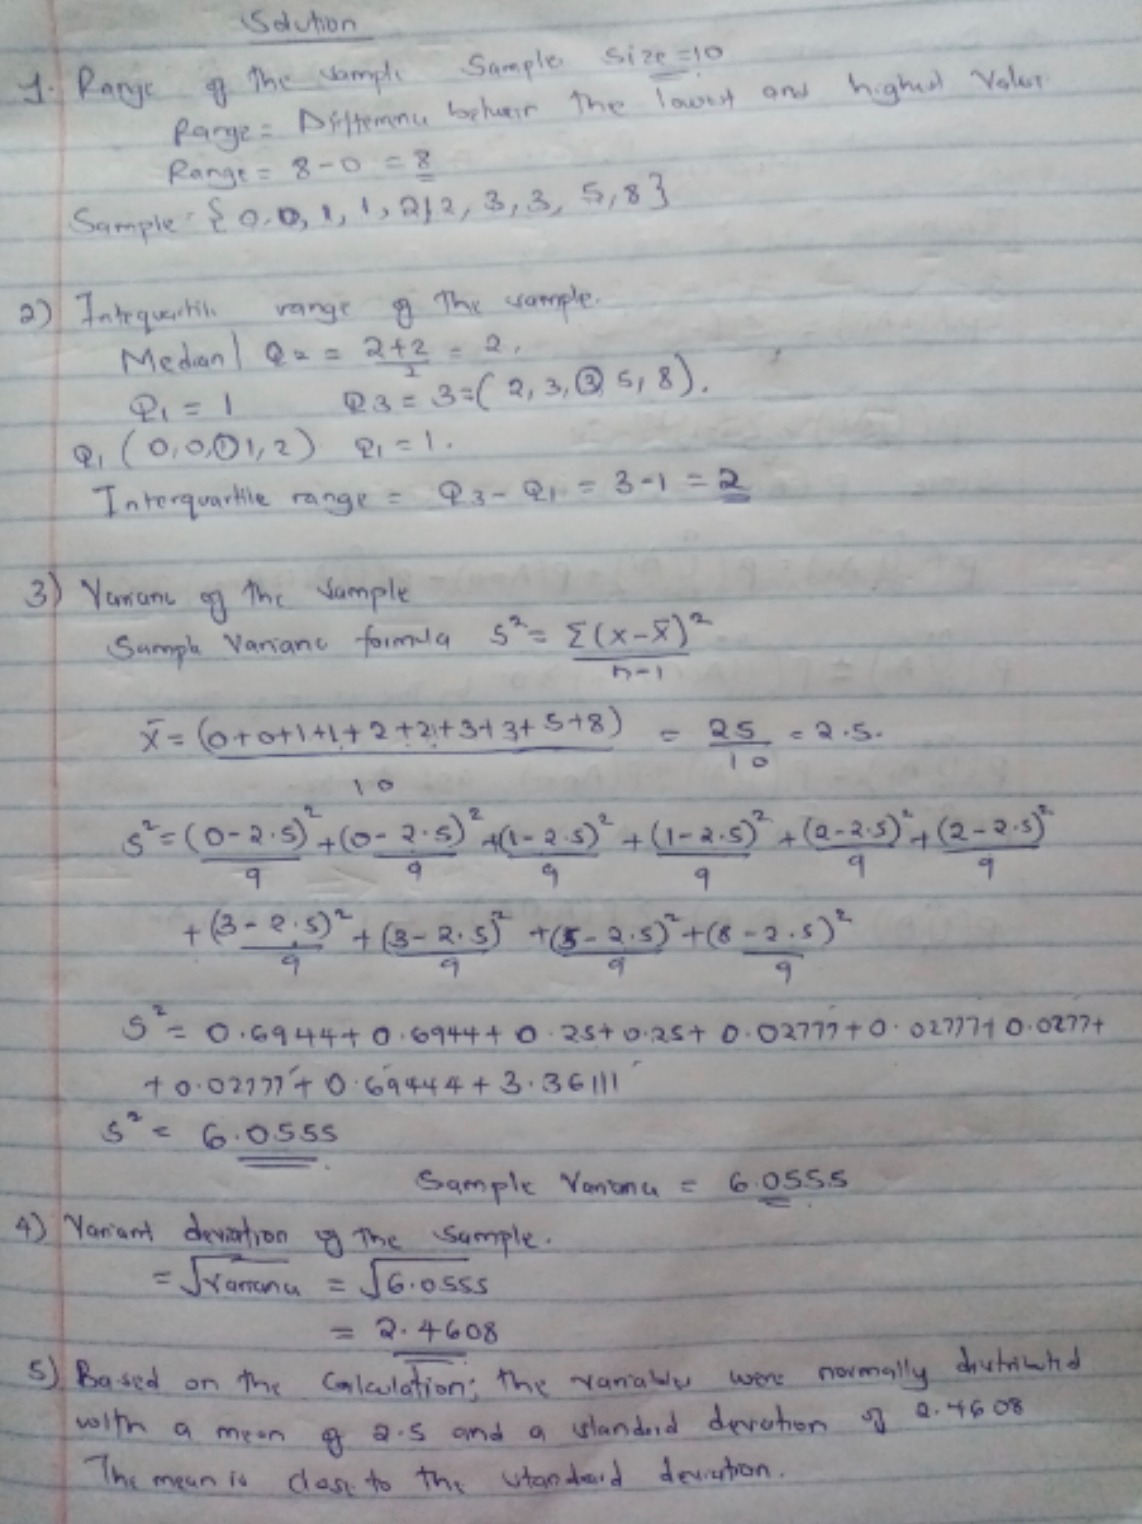 Solution
1. Range of the sample Sample size = 10
Range = Difference between the lowest and highest Value
Range = 8 - 0 = 8
Sample: {0,0, 1, 1, 2, 2, 3, 3, 5, 8}
2) Interquartile range of the sample.
Median/ Q2 = 2+2/2 = 2.
Q1 = 1 Q3 = 3 = (2, 3, 3, 5, 8).
Q1 (0,0,1,1,2) Q1 = 1.
Interquartile range = Q3 - Q1 = 3 - 1 = 2
3) Varianc of the sample
Sample Varianc formula S² = Σ(x - x̄)² / n-1
x̄ = (0+0+1+1+2+2+3+3+5+8) / 10 = 25/10 = 2.5.
S² = (0-2.5)²/9 + (0-2.5)²/9 + (1-2.5)²/9 + (1-2.5)²/9 + (2-2.5)²/9 + (2-2.5)²/9
+ (3-2.5)²/9 + (3-2.5)²/9 + (5-2.5)²/9 + (8-2.5)²/9
S² = 0.6944 + 0.6944 + 0.25 + 0.25 + 0.02777 + 0.02777 + 0.0277 +
+ 0.02777 + 0.69444 + 3.36111
S² = 6.0555
Sample Variance = 6.0555
4) Variant deviation of the sample.
= √variance = √6.0555
= 2.4608
5) Based on the Calculation; the variables were normally distributed
with a mean of 2.5 and a standard deviation of 2.4608
The mean is close to the standard deviation.